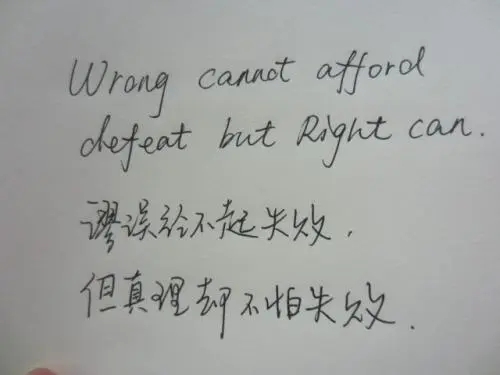 Wrong cannot afford
defeat but Right can.
谬误经不起失败,
但真理却不怕失败.